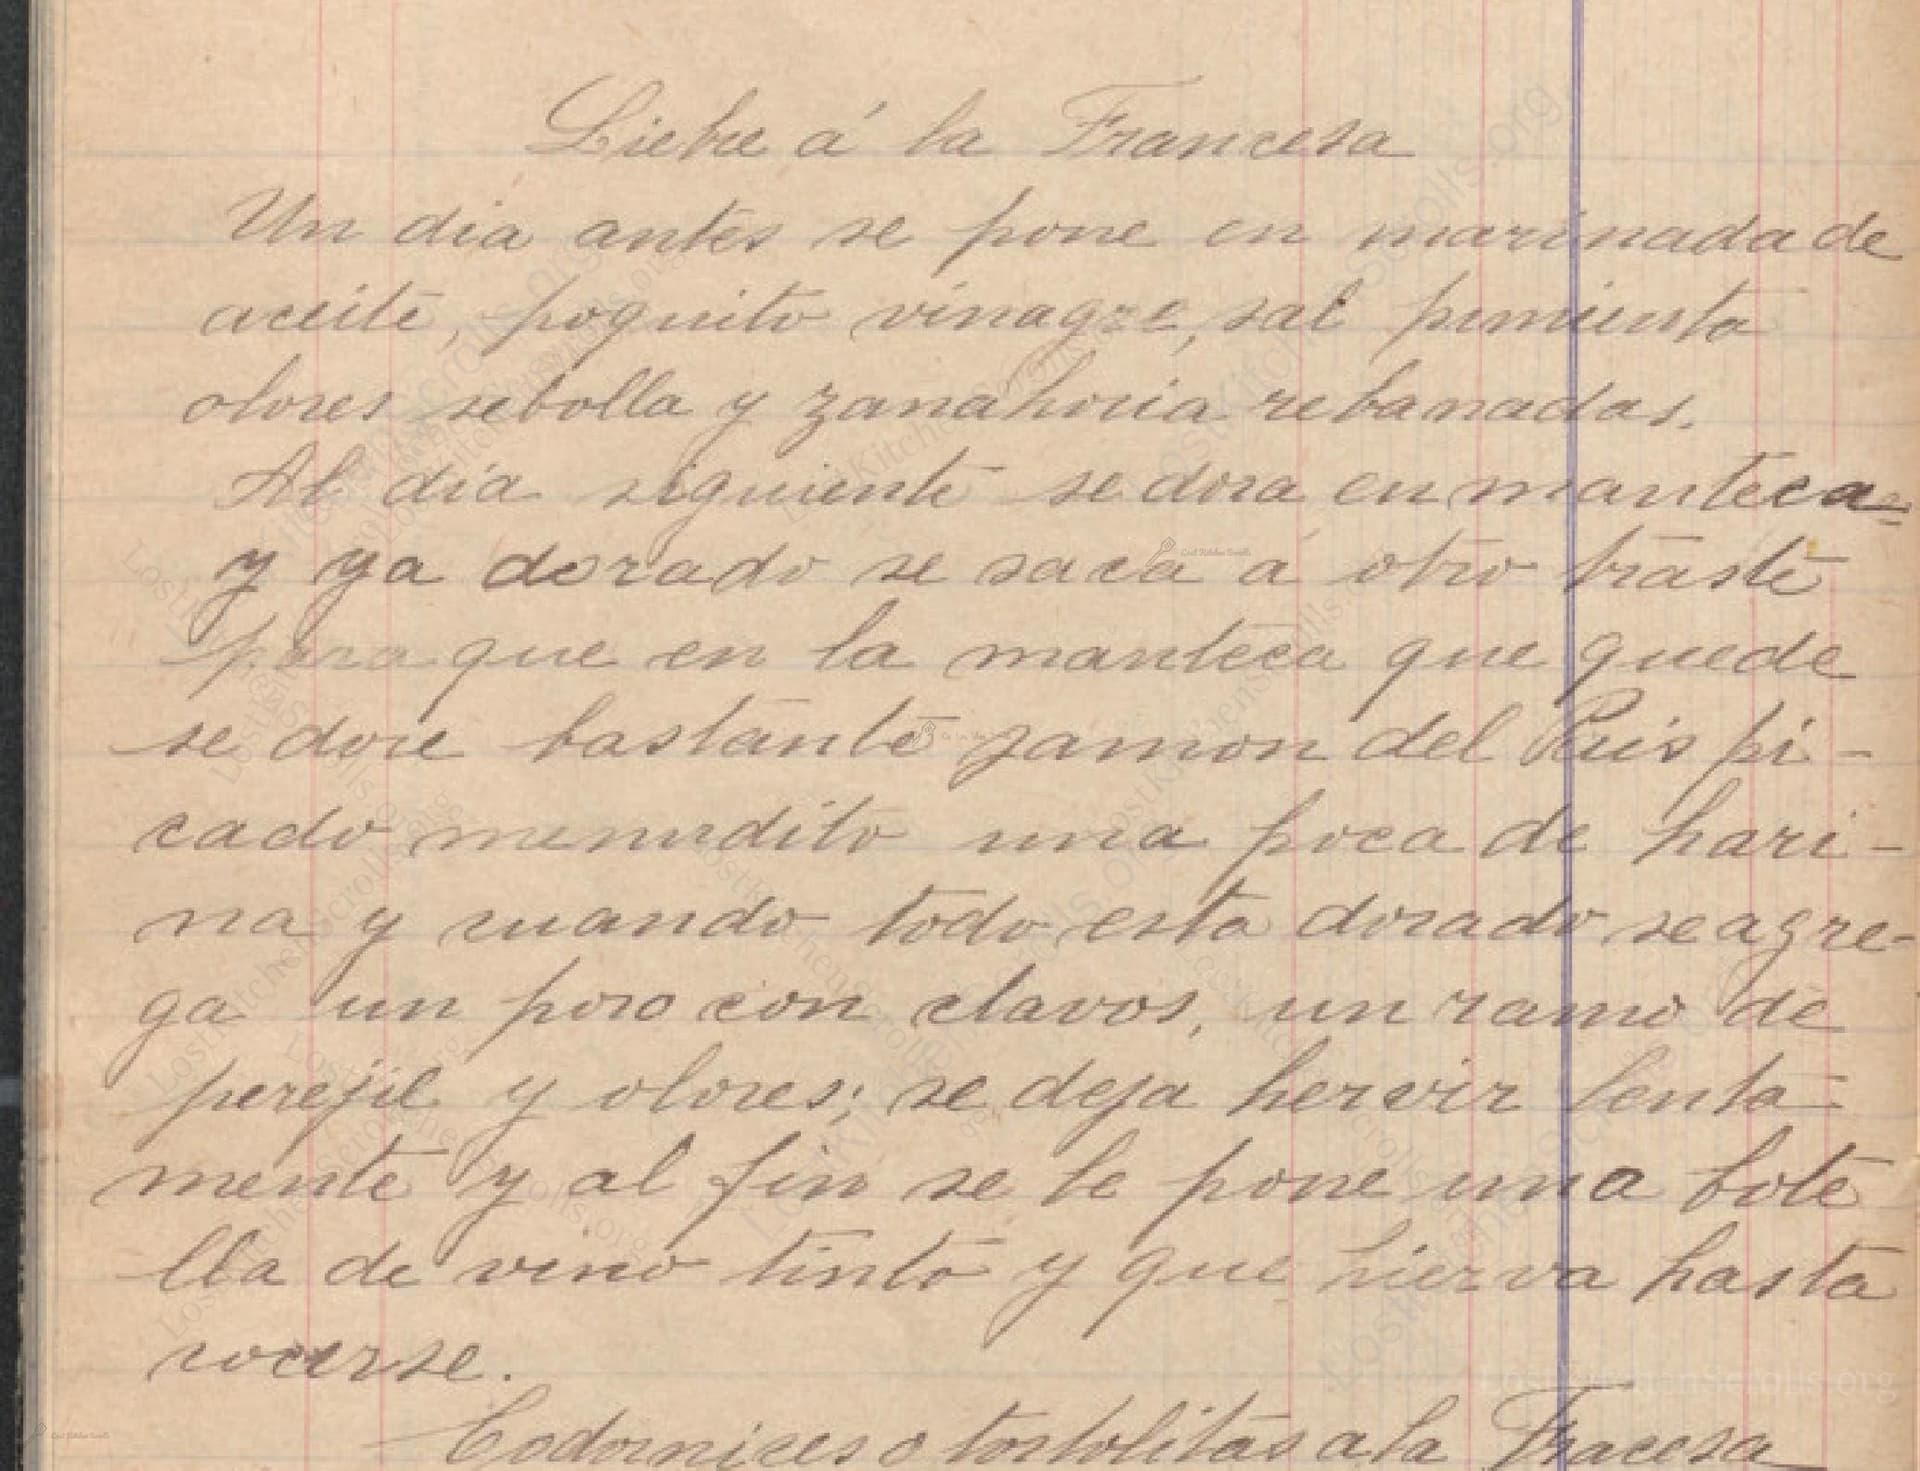 Liebre á la Francesa
Un dia antes se pone en marinada de
aceite, poquito vinagre, sal pimienta
olores sebolla y zanahoria rebanadas.
Al dia siguiente se dora en manteca
y ya dorado se saca á otro traste
para que en la manteca que quede
se dore bastante jamon del Pais pi-
cado menudito una poca de hari-
na y cuando todo esta dorado se agre-
ga un poro con clavos, un ramo de
perejil y olores; se deja hervir lenta
mente y al fin se le pone una bote
lla de vino tinto y que hierva hasta
cocerse.
Codornices o tortolitas a la Fracesa